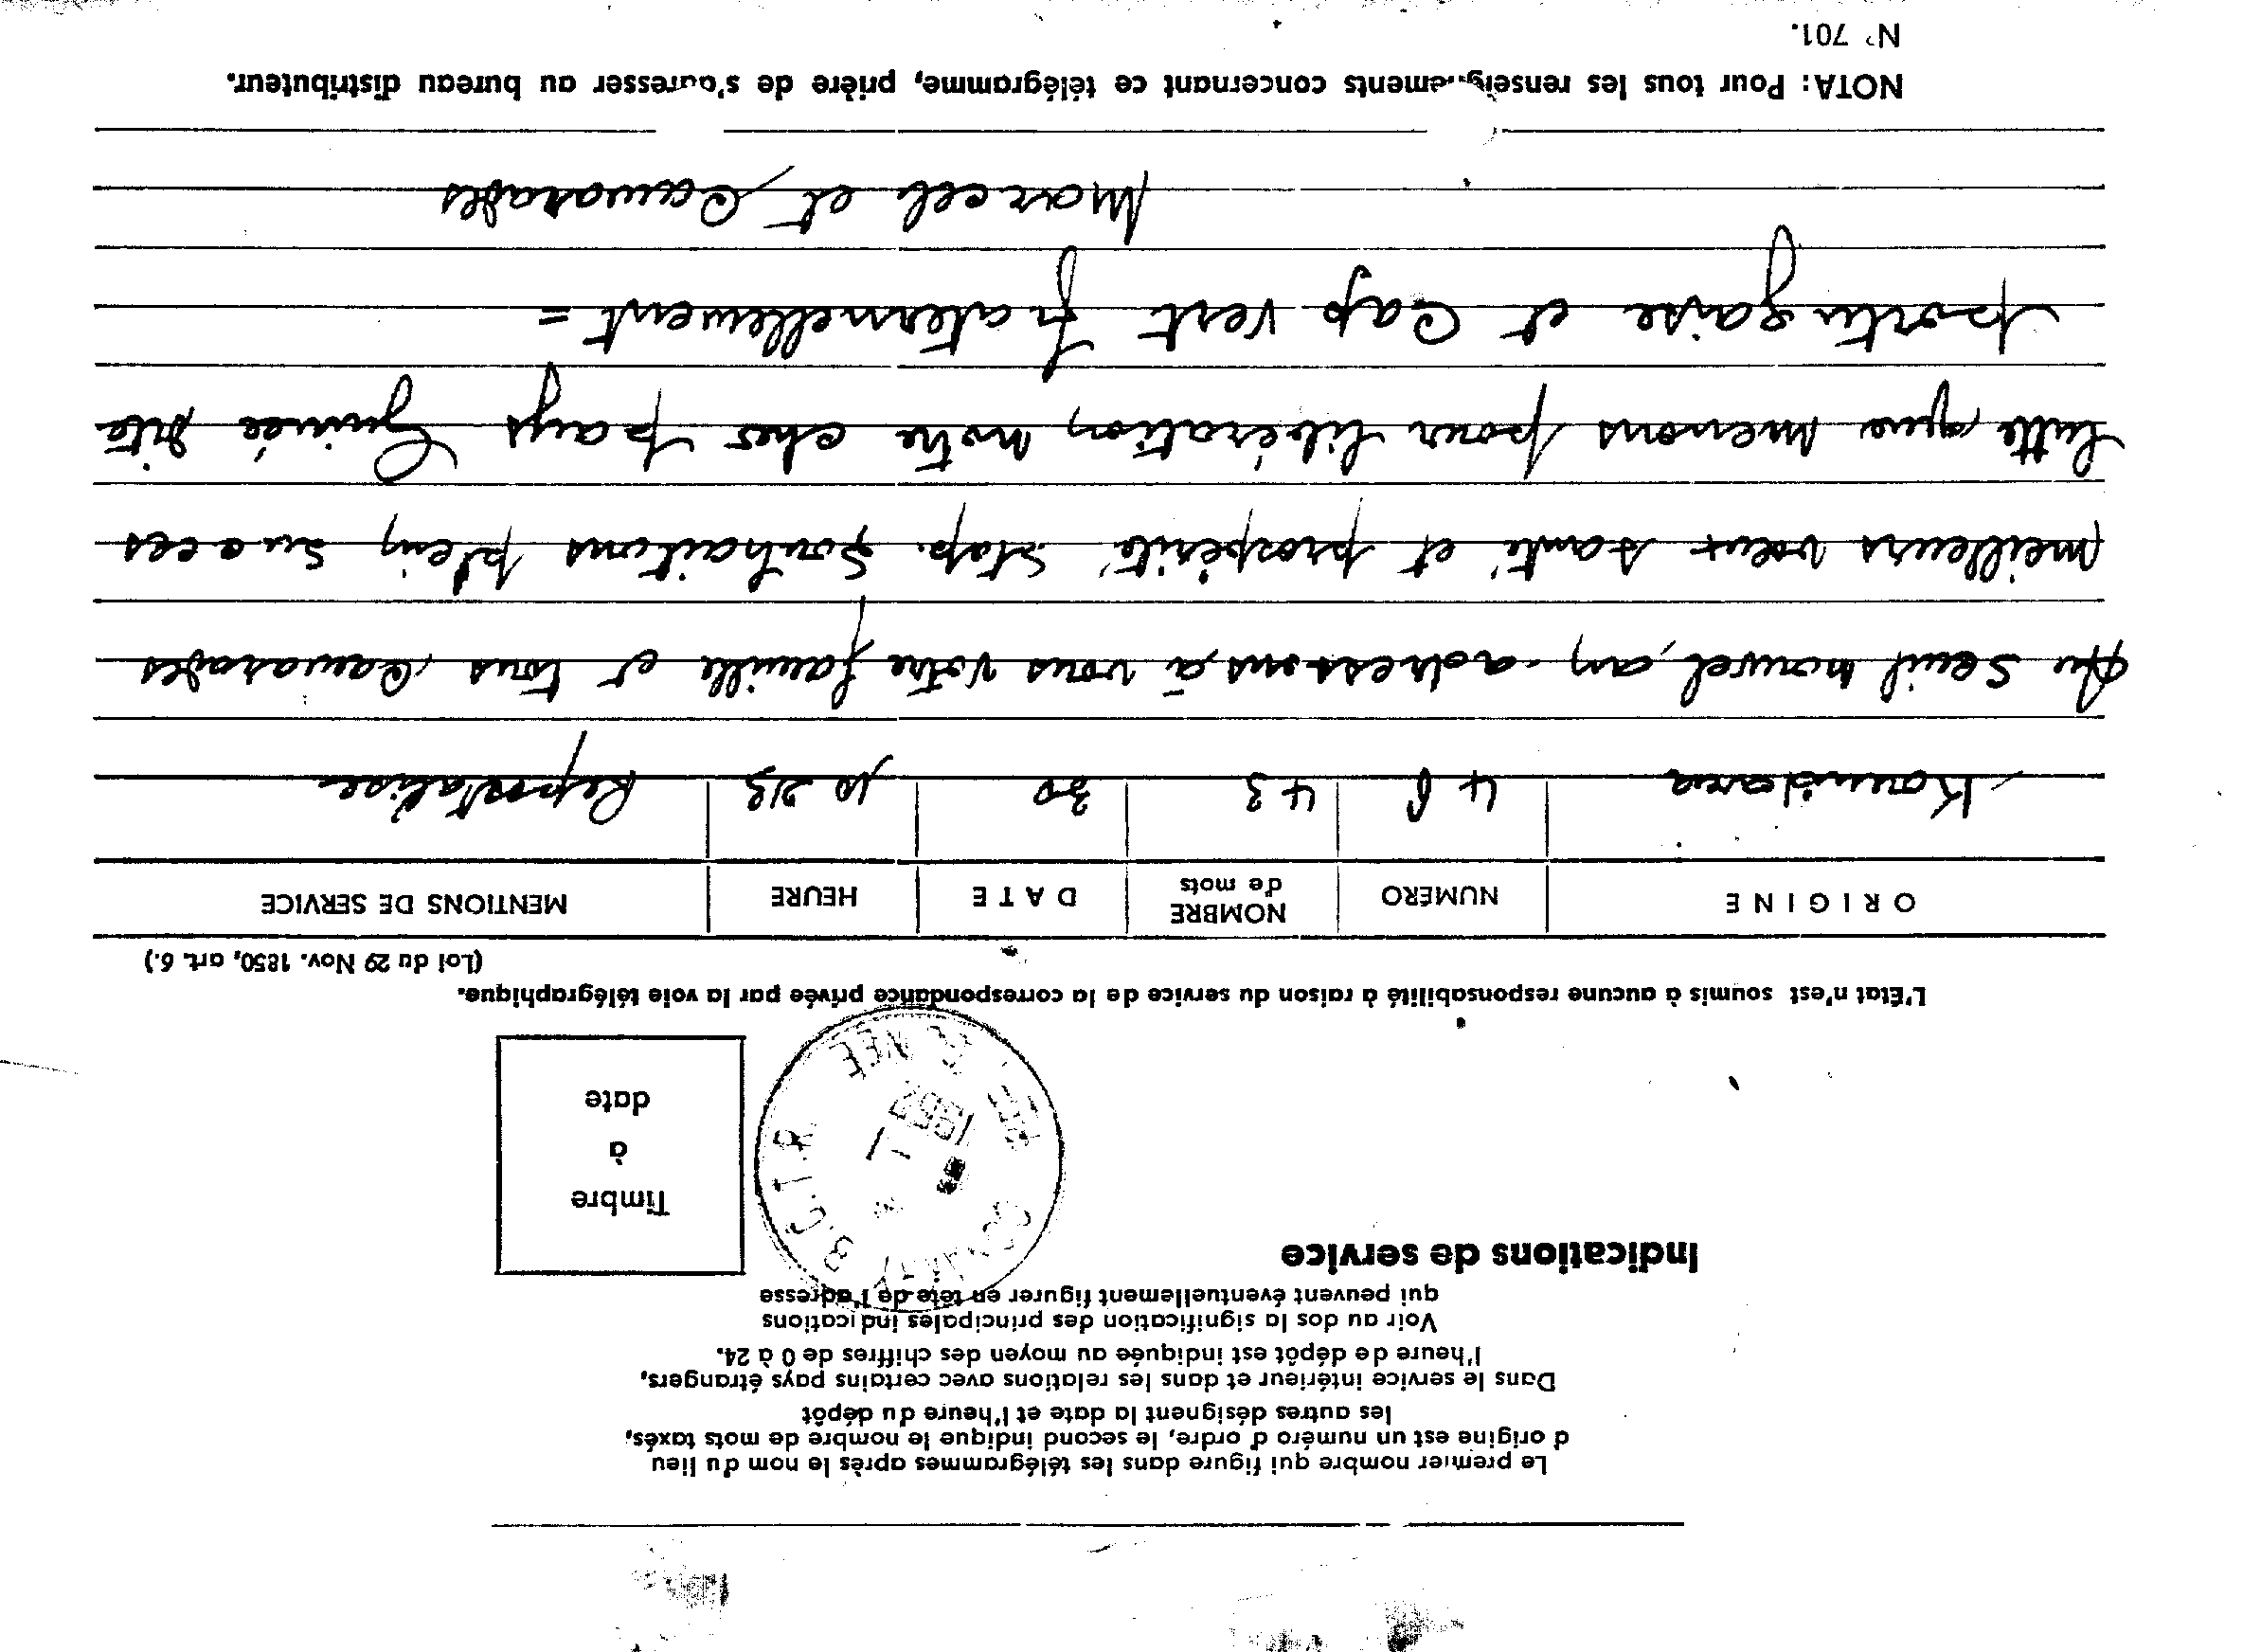 Le premier nombre qui figure dans les télégrammes après le nom du lieu
d origine est un numéro d ordre, le second indique le nombre de mots taxés,
les autres désignent la date et l'heure du dépôt
Dans le service intérieur et dans les relations avec certains pays étrangers,
l'heure de dépôt est indiquée au moyen des chiffres de 0 à 24.
Voir au dos la signification des principales indications
qui peuvent éventuellement figurer en tête de l'adresse
Indications de service
Timbre
à
date
CONAKRY B.C.T.R
L'État n'est soumis à aucune responsabilité à raison du service de la correspondance privée par la voie télégraphique.
(Loi du 29 Nov. 1850, art. 6.)
ORIGINE NUMERO NOMBRE de mots DATE HEURE MENTIONS DE SERVICE
43 30
Au Seuil nouvel an adressons à vous votre famille et tous Camarades
meilleurs voeux santé et prospérité Stop. Souhaitons plein succes
lutte que menons pour libération notre cher pays Guinée dite
portugaise et Cap vert fraternellement =
Marcel et Camarades
NOTA: Pour tous les renseignements concernant ce télégramme, prière de s'adresser au bureau distributeur.
N° 701.